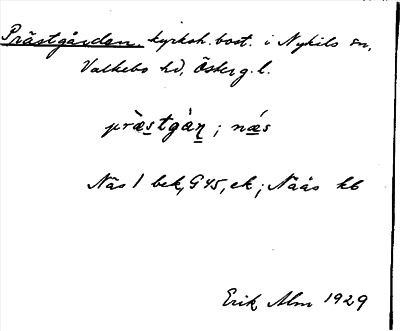 Prästgården, kyrkoh. bost. i Nykils sn,
Valkebo hd, Österg. l.
præ̀stgàṇ ; næ̀s
Näs 1 bek, G45, ek ; Nääs kb
Erik Alm 1929